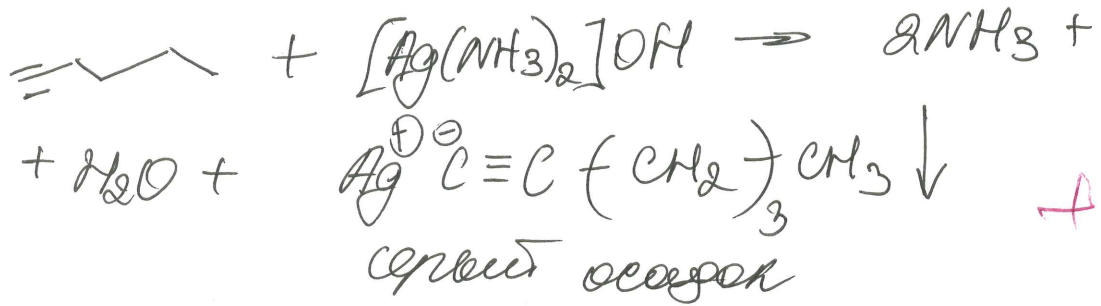 + [Ag(NH3)2]OH → 2NH3 +
+ H2O + Ag⊕ ⊖C≡C-(CH2)3-CH3↓ +
серый осадок